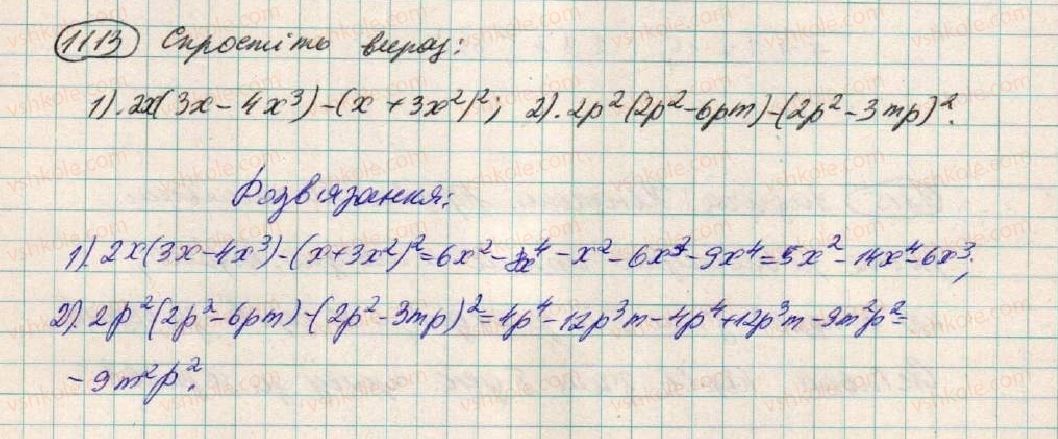 1113 Спростіть вираз:
1). 2x(3x-4x³)-(x+3x²)²; 2). 2p²(2p²-6pm)-(2p²-3mp)².
Розв'язання:
1). 2x(3x-4x³)-(x+3x²)²=6x²-8x⁴-x²-6x³-9x⁴=5x²-14x⁴-6x³;
2). 2p²(2p²-6pm)-(2p²-3mp)²=4p⁴-12p³m-4p⁴+12p³m-9m²p²=
-9m²p².